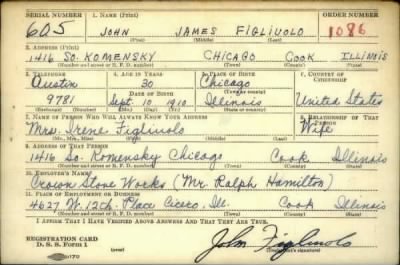 SERIAL NUMBER 1. NAME (Print) ORDER NUMBER
605 JOHN JAMES FIGLIUOLO 1086
(First) (Middle) (Last)
2. ADDRESS (Print)
1416 SO. KOMENSKY CHICAGO COOK ILLINOIS
(Number and street or R. F. D. number) (Town) (County) (State)
3. TELEPHONE 4. AGE IN YEARS 5. PLACE OF BIRTH 6. COUNTRY OF CITIZENSHIP
Austin 30 Chicago
DATE OF BIRTH (Town or county)
9781 Sept. 10 1910 Illinois United States
(Exchange) (Number) (Mo.) (Day) (Yr.) (State or country)
7. NAME OF PERSON WHO WILL ALWAYS KNOW YOUR ADDRESS 8. RELATIONSHIP OF THAT PERSON
Mrs. Irene Figliuolo Wife
(Mr., Mrs., Miss) (First) (Middle) (Last)
9. ADDRESS OF THAT PERSON
1416 So. Komensky Chicago Cook Illinois
(Number and street or R. F. D. number) (Town) (County) (State)
10. EMPLOYER'S NAME
Crown Stove Works (Mr. Ralph Hamilton)
11. PLACE OF EMPLOYMENT OR BUSINESS
4627 W. 12th. Place Cicero, Ill. Cook Illinois
(Number and street or R. F. D. number) (Town) (County) (State)
I AFFIRM THAT I HAVE VERIFIED ABOVE ANSWERS AND THAT THEY ARE TRUE.
REGISTRATION CARD
D. S. S. Form 1
John Figliuolo